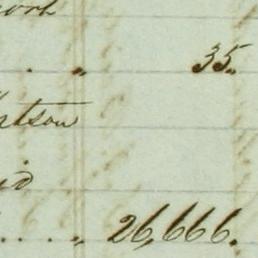 ork
. „ 35.
rtson
id
. . . . „ 26,666.